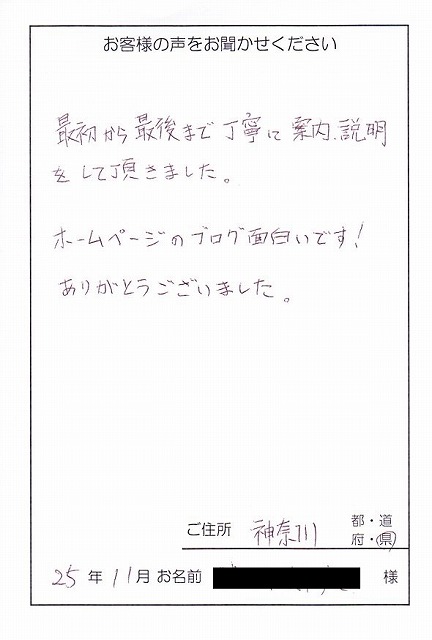 お客様の声をお聞かせください
最初から最後まで丁寧に案内、説明
をして頂きました。
ホームページのブログ面白いです!
ありがとうございました。
ご住所 神奈川 都・道
府・県
25年11月 お名前 様